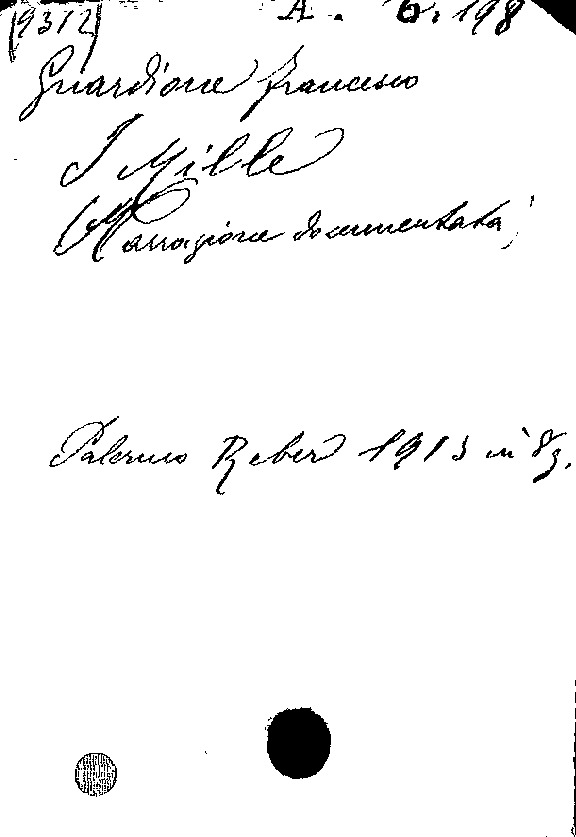 (9312) A. 6. 198
Guardione Francesco
I Mille
Narrazione documentata
Palermo Reber 1913 in 8g.